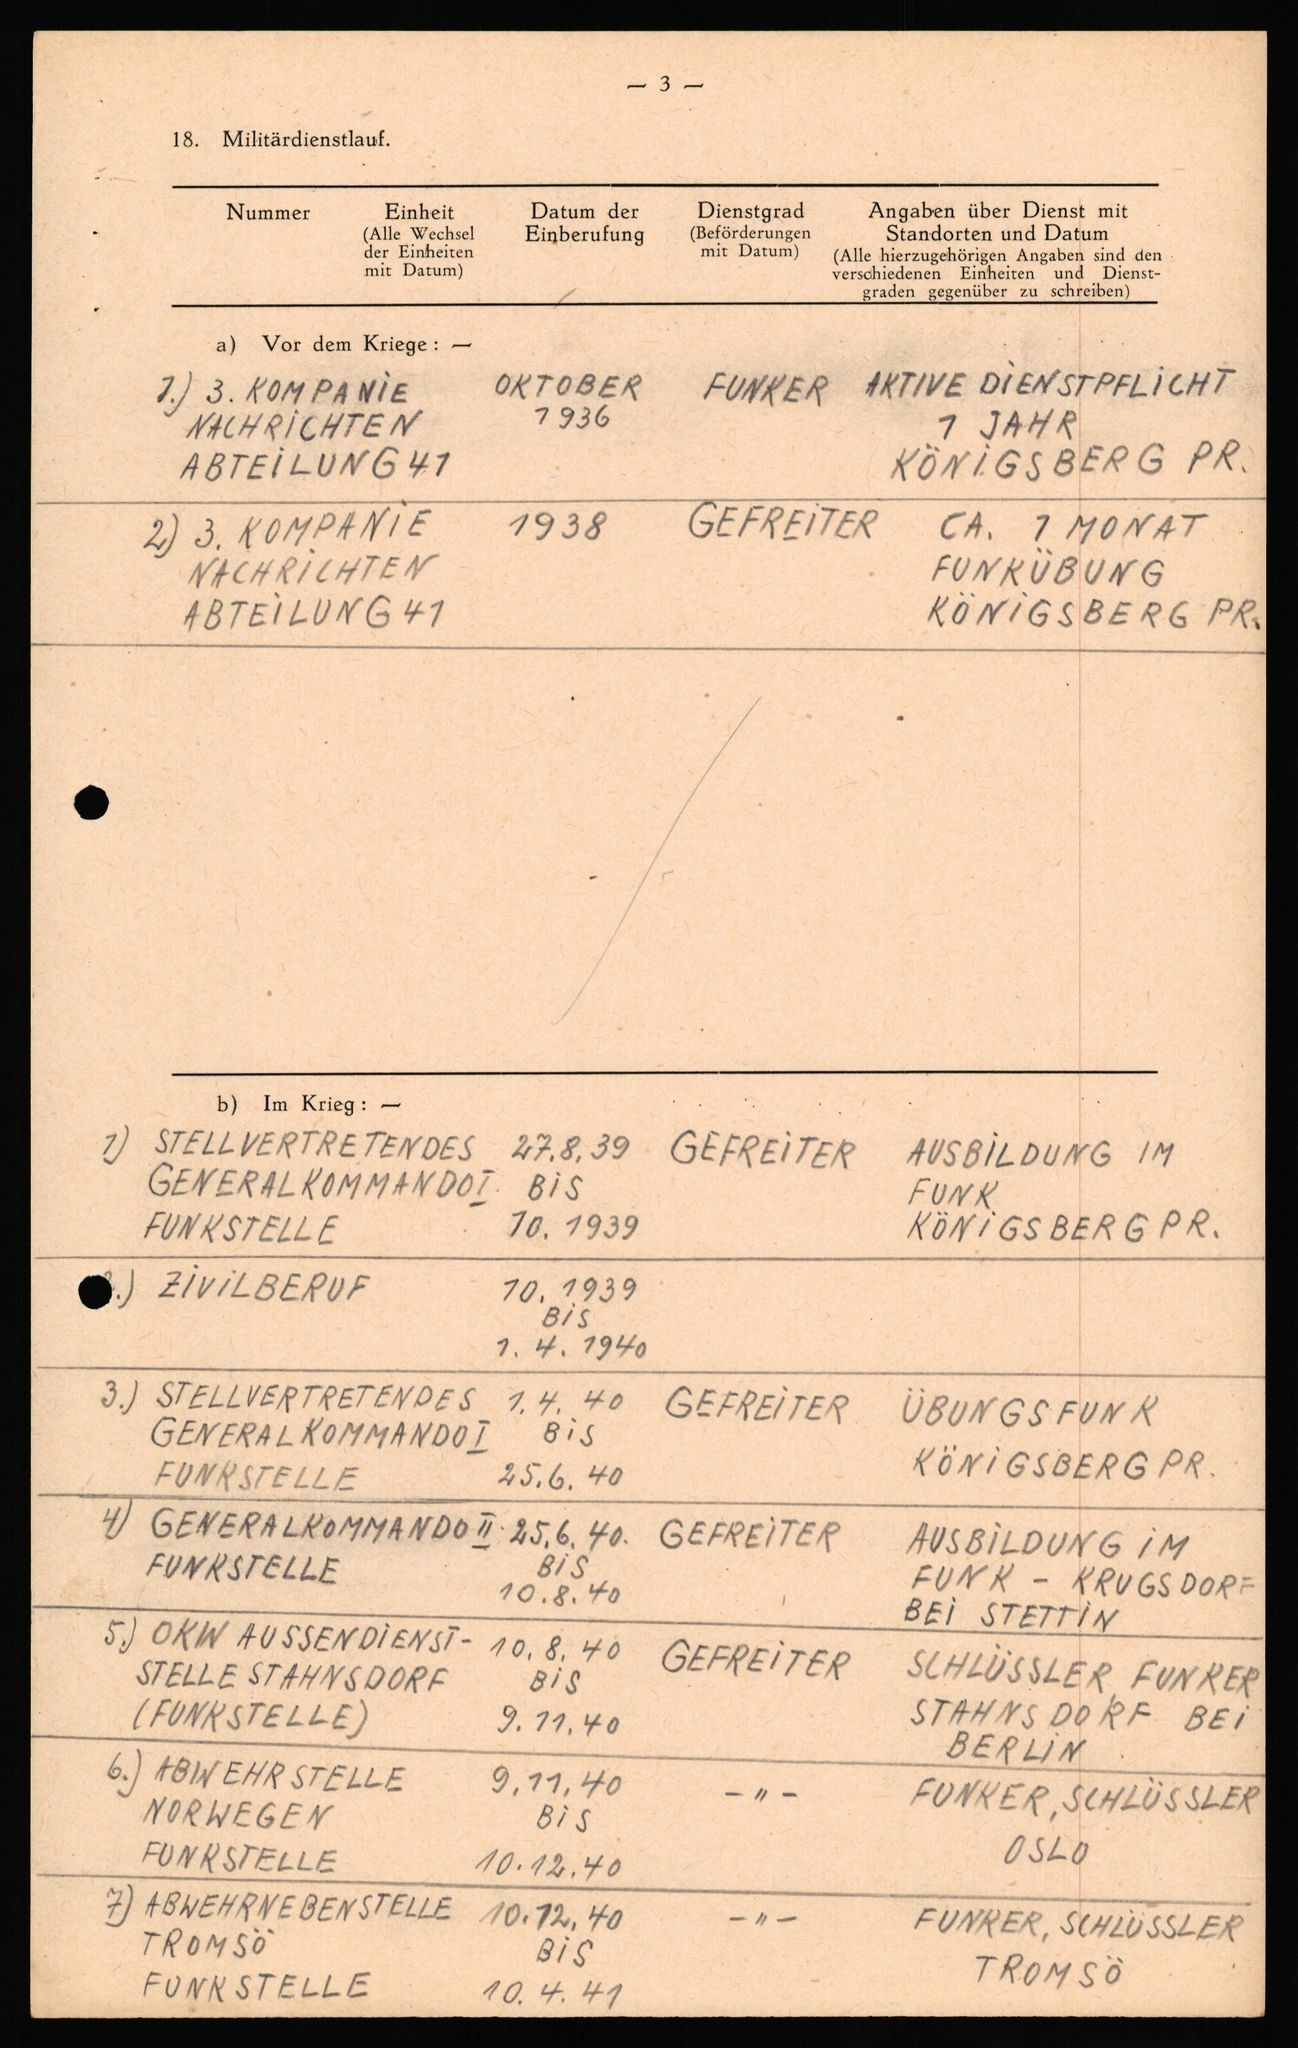 — 3 —
18. Militärdienstlauf.
Nummer Einheit Datum der Dienstgrad Angaben über Dienst mit
(Alle Wechsel Einberufung (Beförderungen Standorten und Datum
der Einheiten mit Datum) (Alle hierzugehörigen Angaben sind den
mit Datum) verschiedenen Einheiten und Dienst-
graden gegenüber zu schreiben)
a) Vor dem Kriege: —
1.) 3. KOMPANIE OKTOBER FUNKER AKTIVE DIENSTPFLICHT
NACHRICHTEN 1936 1 JAHR
ABTEILUNG 41 KÖNIGSBERG PR.
2) 3. KOMPANIE 1938 GEFREITER CA. 1 MONAT
NACHRICHTEN FUNKÜBUNG
ABTEILUNG 41 KÖNIGSBERG PR.
b) Im Krieg: —
1) STELLVERTRETENDES 27.8.39 GEFREITER AUSBILDUNG IM
GENERALKOMMANDO I. BIS FUNK
FUNKSTELLE 10. 1939 KÖNIGSBERG PR.
.) ZIVILBERUF 10. 1939
BIS
1. 4. 1940
3.) STELLVERTRETENDES 1.4. 40 GEFREITER ÜBUNGSFUNK
GENERALKOMMANDO I BIS KÖNIGSBERG PR.
FUNKSTELLE 25.6.40
4) GENERALKOMMANDO II. 25.6.40. GEFREITER AUSBILDUNG IM
FUNKSTELLE BIS FUNK - KRUGSDORF
10.8.40 BEI STETTIN
5.) OKW AUSSENDIENST- 10.8.40 GEFREITER SCHLÜSSLER, FUNKER
STELLE STAHNSDORF BIS STAHNSDORF BEI
(FUNKSTELLE) 9.11.40 BERLIN
6.) ABWEHRSTELLE 9.11.40 -"- FUNKER, SCHLÜSSLER
NORWEGEN BIS OSLO
FUNKSTELLE 10.12.40
7) ABWEHRNEBENSTELLE 10.12.40 -"- FUNKER, SCHLÜSSLER
TROMSÖ BIS TROMSÖ
FUNKSTELLE 10.4.41